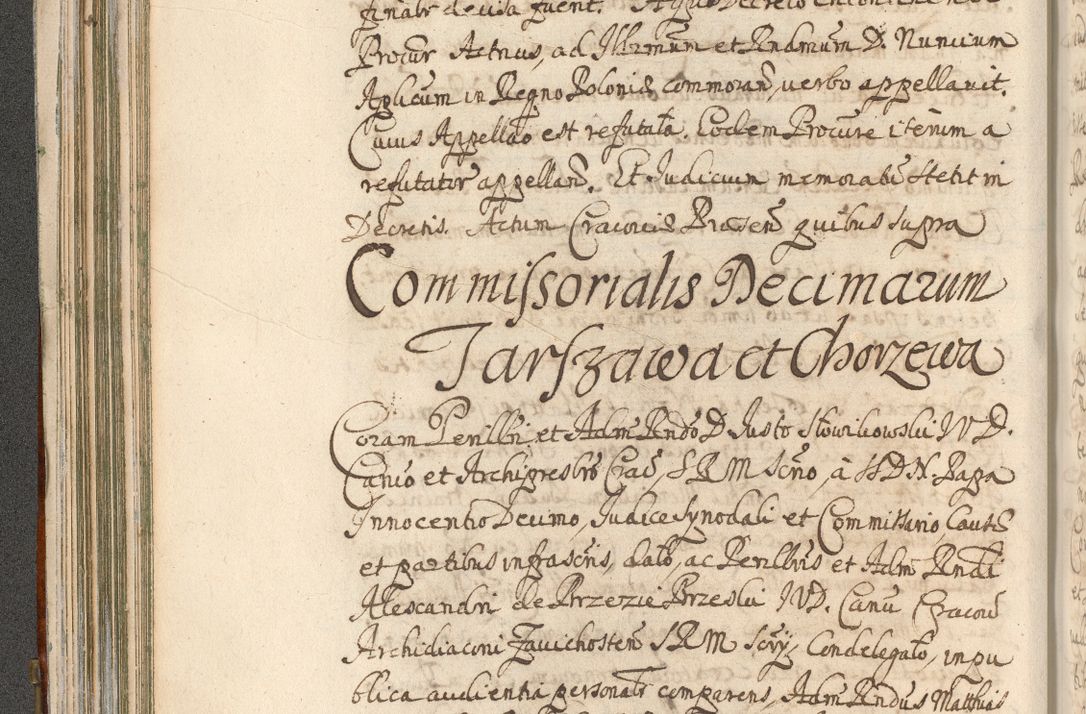 Procur Actrius, ad Illrmum et Rndmum D. Nuncium
Aplicum in Regno Poloniæ commoran, verbo appellavit.
Cuius Appellao est refutata. Eodem Procure iterum a
refutator appellan. Et Judicium memoratu stetit in
Decretis. Actum Cracoviæ Præsen quibus supra
Commissorialis Decimarum
Tarszawa et Chorzewa
Coram Perillri et Adm Rndo D. Justo Słowikowski JVD.
Canco et Archipresbro Crac, SRM Scrio, à SSDN. Papa
Innocentio Decimo, Judice Synodali et Commissario, Causæ
et partibus infrascris, dato, ac Perillbris et Adm Rndi
Alexandri de Brzezie Brzeski JVD. Canci Cracov
Archidiaconi Zavichosten SRM Scrij, Condelegato, in pu
blica audientia personalr comparens, Adm Rndus Matthias